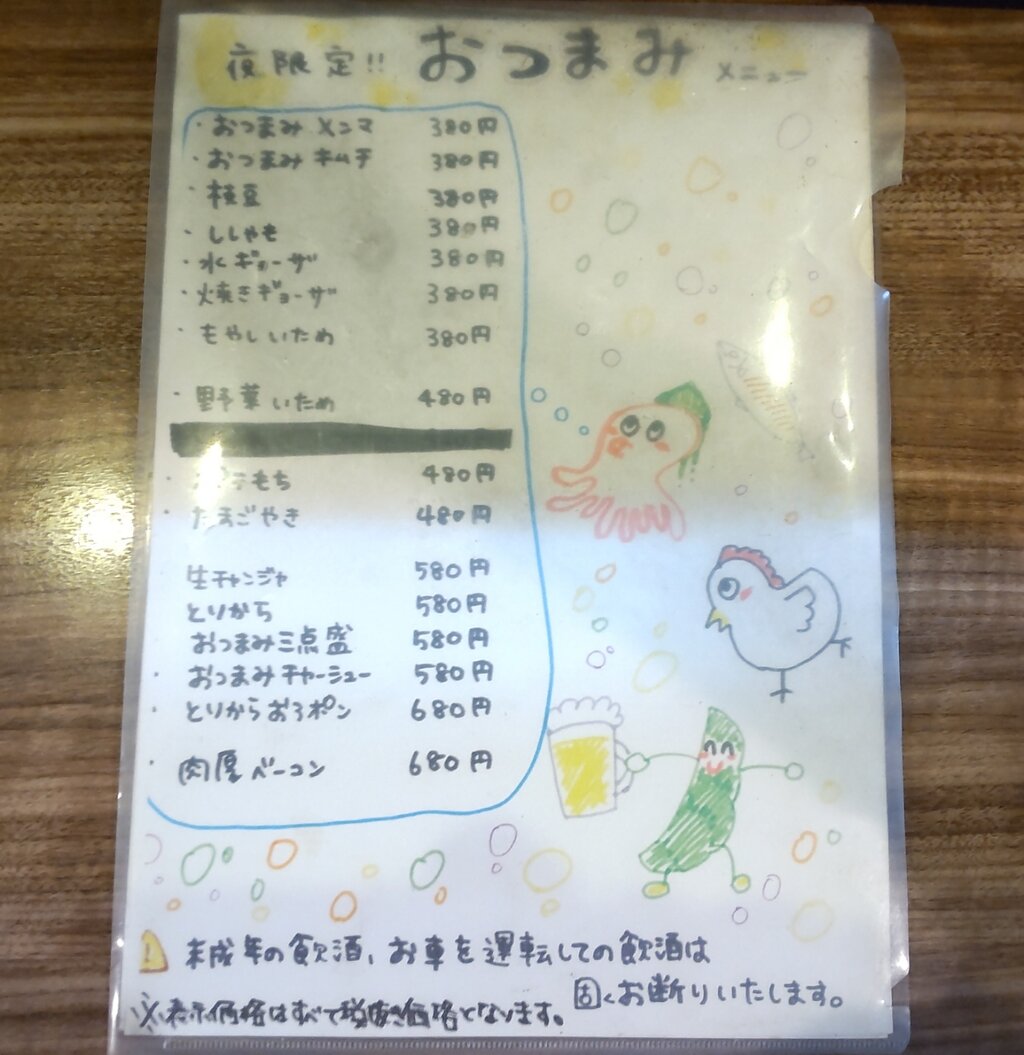 夜限定!! おつまみ メニュー
・おつまみ メンマ 380円
・おつまみ キムチ 380円
・枝豆 380円
・ししゃも 380円
・水ギョーザ 380円
・焼きギョーザ 380円
・もやしいため 380円
・野菜いため 480円
・ポテもち 480円
・たまごやき 480円
生チャンジャ 580円
とりから 580円
おつまみ三点盛 580円
・おつまみチャーシュー 580円
・とりからおろポン 680円
・肉厚ベーコン 680円
! 未成年の飲酒、お車を運転しての飲酒は
固くお断りいたします。
※表示価格はすべて税抜き価格となります。